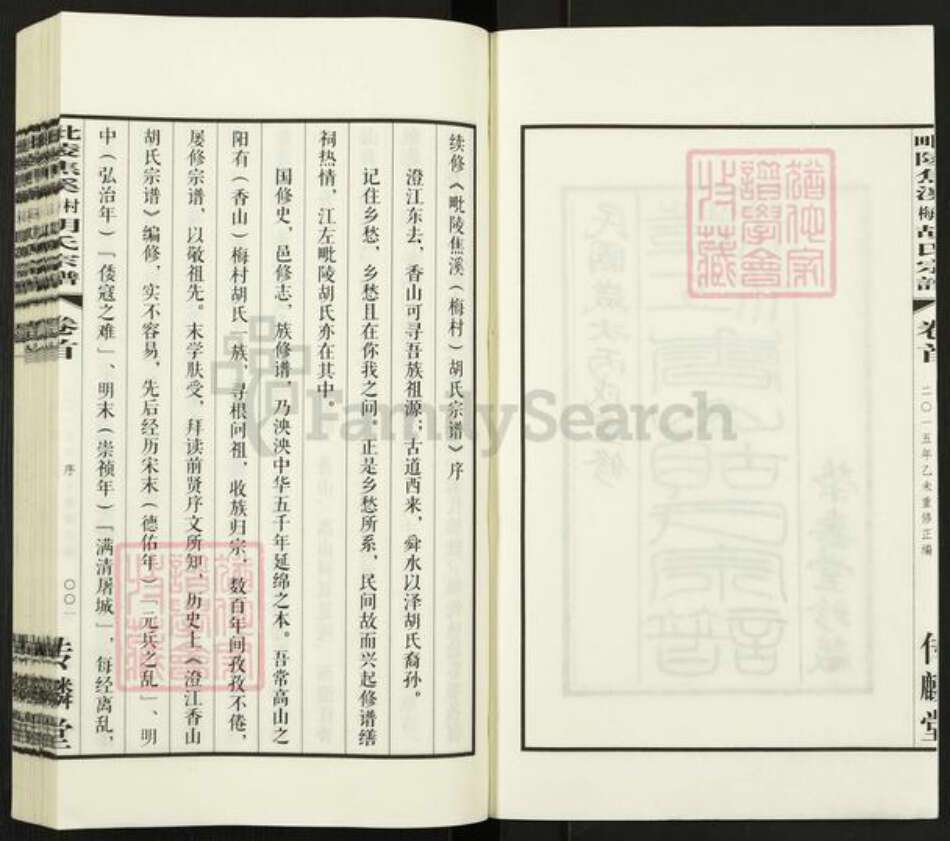 毗陵焦溪梅村胡氏宗谱
卷首
二〇一五年乙未重修正编
传麟堂
续修《毗陵焦溪（梅村）胡氏宗谱》序
澄江东去，香山可寻吾族祖源；古道西来，舜水以泽胡氏裔孙。
记住乡愁，乡愁且在你我之间；正是乡愁所系，民间故而兴起修谱缮
祠热情，江左毗陵胡氏亦在其中。
国修史，邑修志，族修谱，乃泱泱中华五千年延绵之本。吾常高山之
阳有（香山）梅村胡氏一族，寻根问祖，收族归宗，数百年间孜孜不倦，
屡修宗谱，以敬祖先。末学肤受，拜读前贤序文所知，历史上《澄江香山
胡氏宗谱》编修，实不容易，先后经历宋末（德佑年）「元兵之乱」、明
中（弘治年）「倭寇之难」、明末（崇祯年）「满清屠城」，每经离乱，
卷首
序
〇〇一
FamilySearch